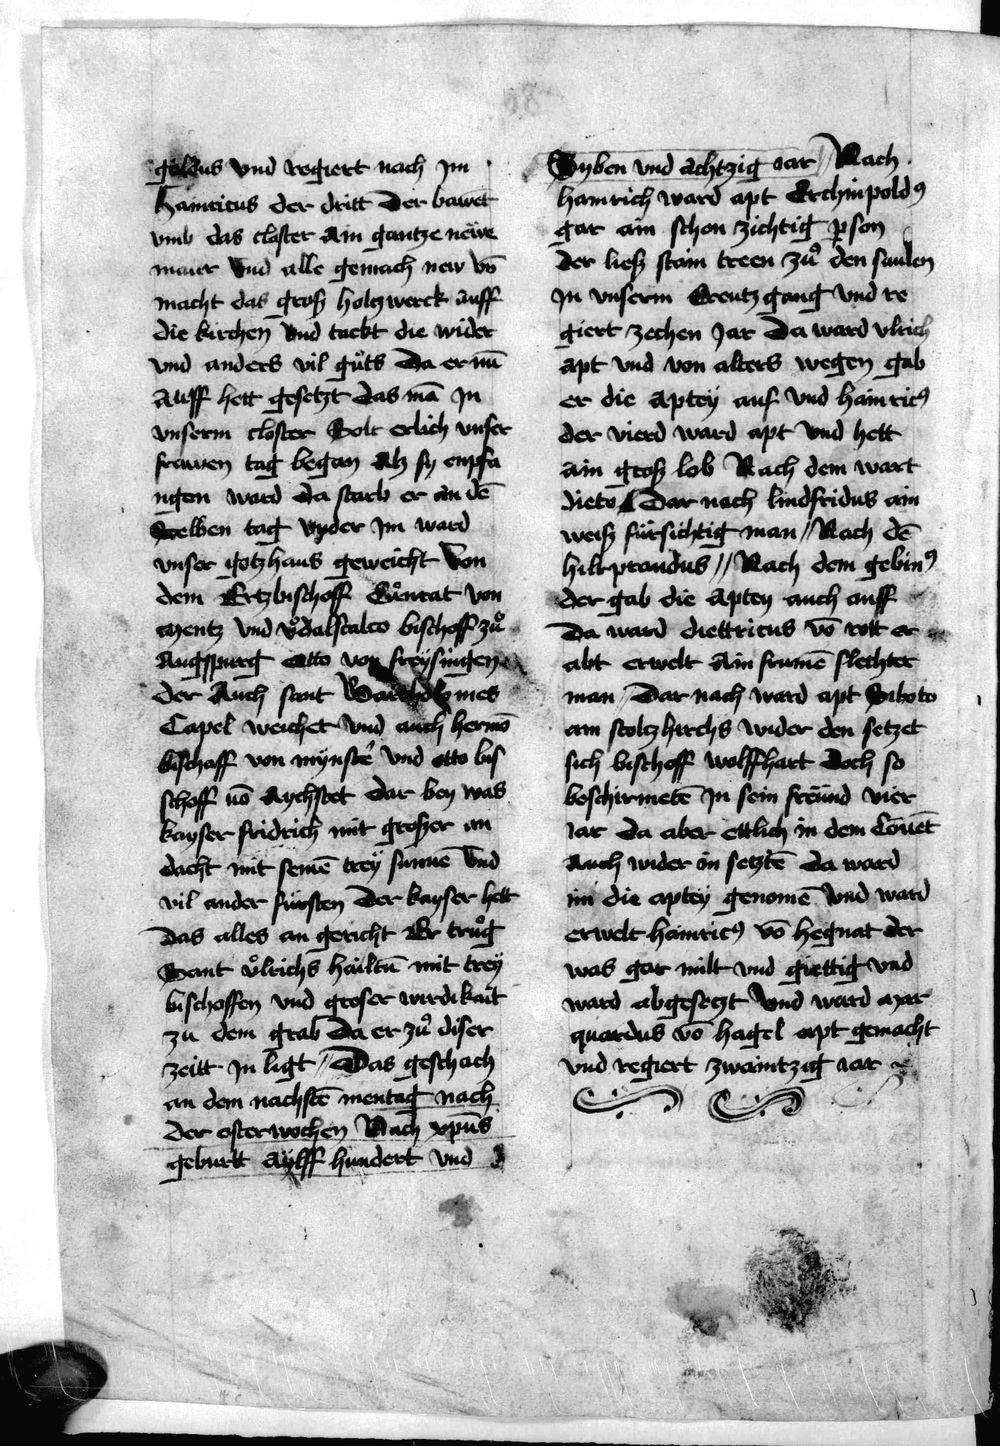 goldus vnd regiert nach jm
hainricus der dritt Der bawet
vmb das closter Ain gantze newe
maur vnd alle gemach new vō
macht das groß holtzwerck auff
die kirchen vnd tackt die wider
vnd anders vil gůts Da er nū
Auff hett gesetzt das mā jn
vnserm closter Solt erlich vnser
frawen tag began Als sy enpfa
ngen ward da starb er an dē
Selben tag vnder jm ward
vnser gotzhaus geweicht von
dem Ertzbischoff Cůnrat von
mentz vnd vͦdalscalco bischoff zuͦ
Augspurg otto von freysingen
der Auch sant Bartholomes
Capel weichet vnd auch hermō
bischoff von mynster vnd otto bis
schoff vō Aychstet dar bey was
kayser fridrich mit großer an
dacht mit seinē trey sunnē vnd
vil ander fürsten Der kayser hett
das alles an gericht Er truͦg
Sant vͦlrichs hailtū mit trey
bischoffen vnd groser wirdikait
zu dem grab Da er zuͦ diser
zeitt jn ligt // Das geschach
an dem nachstē mentag nach
der osterwochen Nach xp̄us
geburt Aylff hundert vnd
Syben vnd achtzig iar // Nach
hainrich ward apt Erchinpoldꝰ
gar ain schon zichtig ꝑson
der ließ stain treen zuͦ den saulen
jn vnserm Creutzgang vnd re
giert zechen jar Da ward vlrich
apt vnd von alters wegen gab
er die Aptey auf vnd hainricꝰ
der vierd ward apt vnd hett
ain groß lob Nach dem wart
dieto / Dar nach lindfridus ain
weiß fürsichtig man // Nach dē
hiltprandus // Nach dem gebinꝰ
der gab die Aptey auch auff
Da ward diettricus vō rott er
abt erwelt Ain frumē slechter
man / Dar nach ward apt Siboto
am stoltzhirchs wider den setzet
sich bischoff wolffhart Doch so
beschirmetē jn sein freünd vier
iar da aber ettlich in dem Cōuēt
Auch wider in setztē da ward
im die aptey genomē vnd ward
erwelt hainricꝰ vō hegnat der
was gar milt vnd giettig vnd
ward abgesetzt vnd ward mar
quardus vō hagel apt gemacht
vnd regiert zwaintzig iar